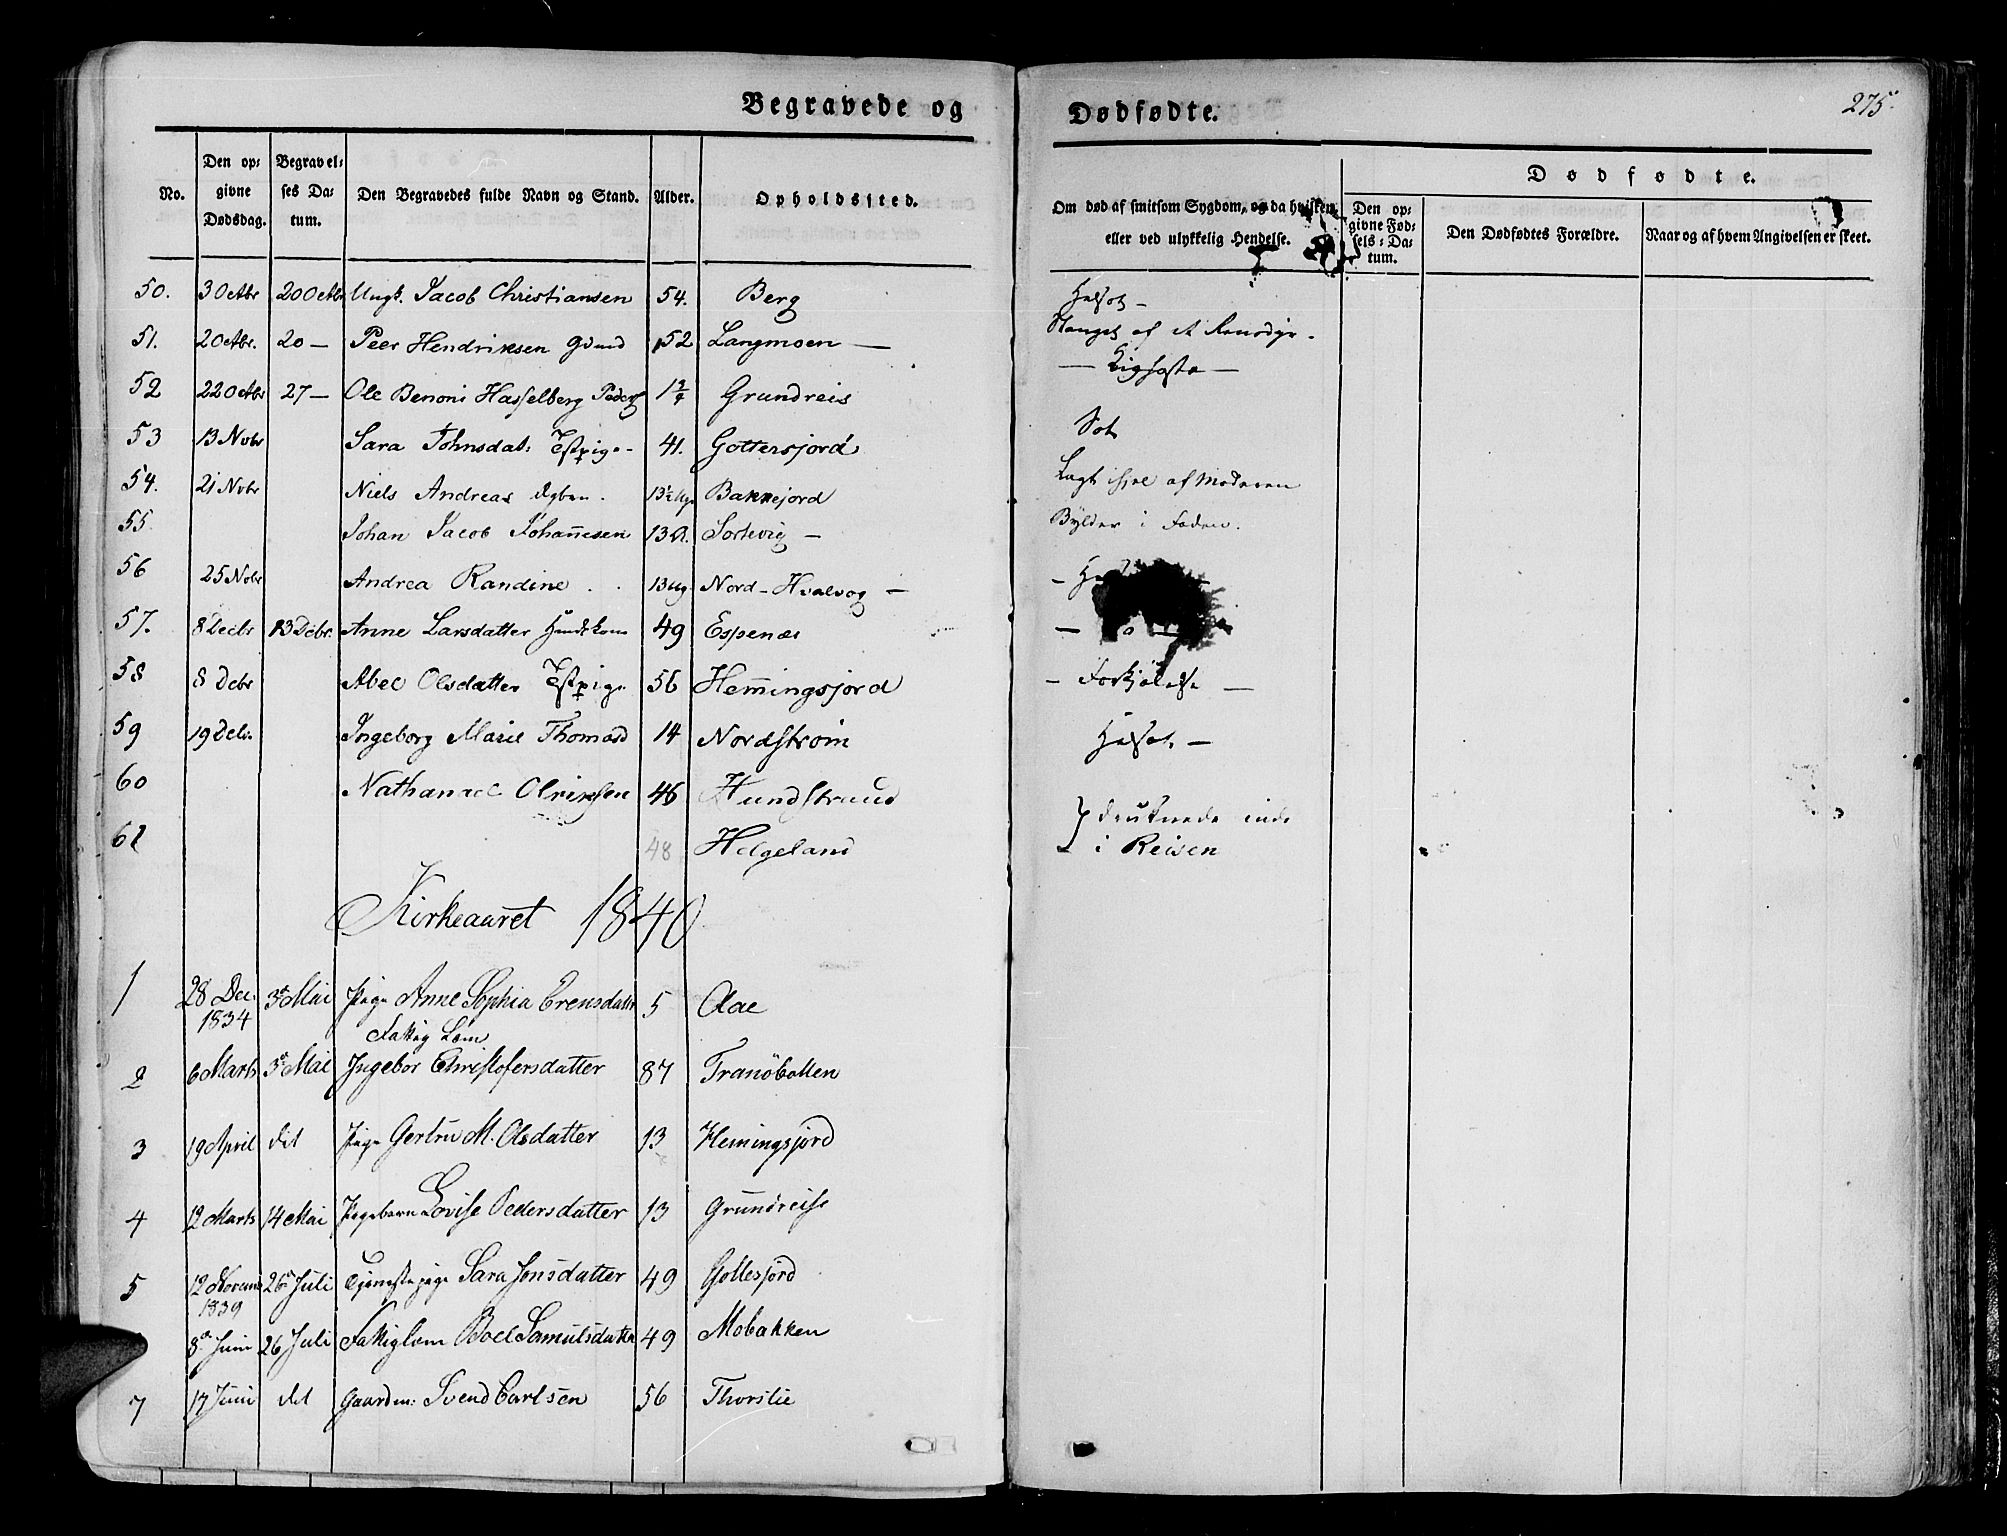 Begravede og
Dødfødte.
275.
No.
Den opgivne Dødsdag.
Begravelses Datum.
Den Begravedes fulde Navn og Stand.
Alder.
Opholdssted.
Om død af smitsom Sygdom, og da hvilken, eller ved ulykkelig Hendelse.
Dødfødte.
Den opgivne Fødsels-Datum.
Den Dødfødtes Forældre.
Naar og af hvem Angivelsen er skeet.
50. 3 Octbr 20 Octbr Ungk. Jacob Christiansen 54. Berg
51. 2 Octbr. 20 — Peer Hendriksen Gdmd 52 Langmoen — Stanget af et Rensdyr.
52 22 Octbr 27 — Ole Benoni Hasselberg Peders Grundreis — Kighoste —
53 13 Novbr Sara Johnsdat: Tjstpige - 41. Gottersfjord Sot
54. 21 Nvbr Niels Andreas 13½ Bakkejord Lagt ihjel af Moderen
55. Johan Jacob Johannesen 13 Sortevig — Bylder i Foden.
56 25 Nvbr Andrea Randine 13 Nord-Hvalvog —
57. 8 Decbr 13 Dcbr. Anne Larsdatter 49 Espenæs
58 8 Dcbr Abel Olsdatter Tjstpige 56 Hemingsjord — Forkjølelse —
59 19 Ingeborg Marie Thomasd 14 Nordstrøm —
60 Nathanael Olriksen 46 Hundstrand } druknede inde
61 48 Helgeland i Reisen
Kirkeaaret 1840
1 28 Dec. 1834 3 Mai Pige Anne Sophia Erensdatter 5 Aae
Fattig Lem
2 6 Marts 3 Mai Ingebor Christofersdatter 87 Tranöbotten
3 19 April dit Pige Gertru M. Olsdatter 13 Hemingsjord
4 12 Marts 14 Mai Pigebarn Lovise Pedersdatter 13 Grundreise
5 12 1839 26 Juli Tjenestepige Sara Jonsdatter 49 Gottesjord
8 Juni 26 Juli Fattiglem Boel Samulsdatter 49 Mobakken
7 17 Juni dit Gaardm: Svend Carlsen 56 Thorslie